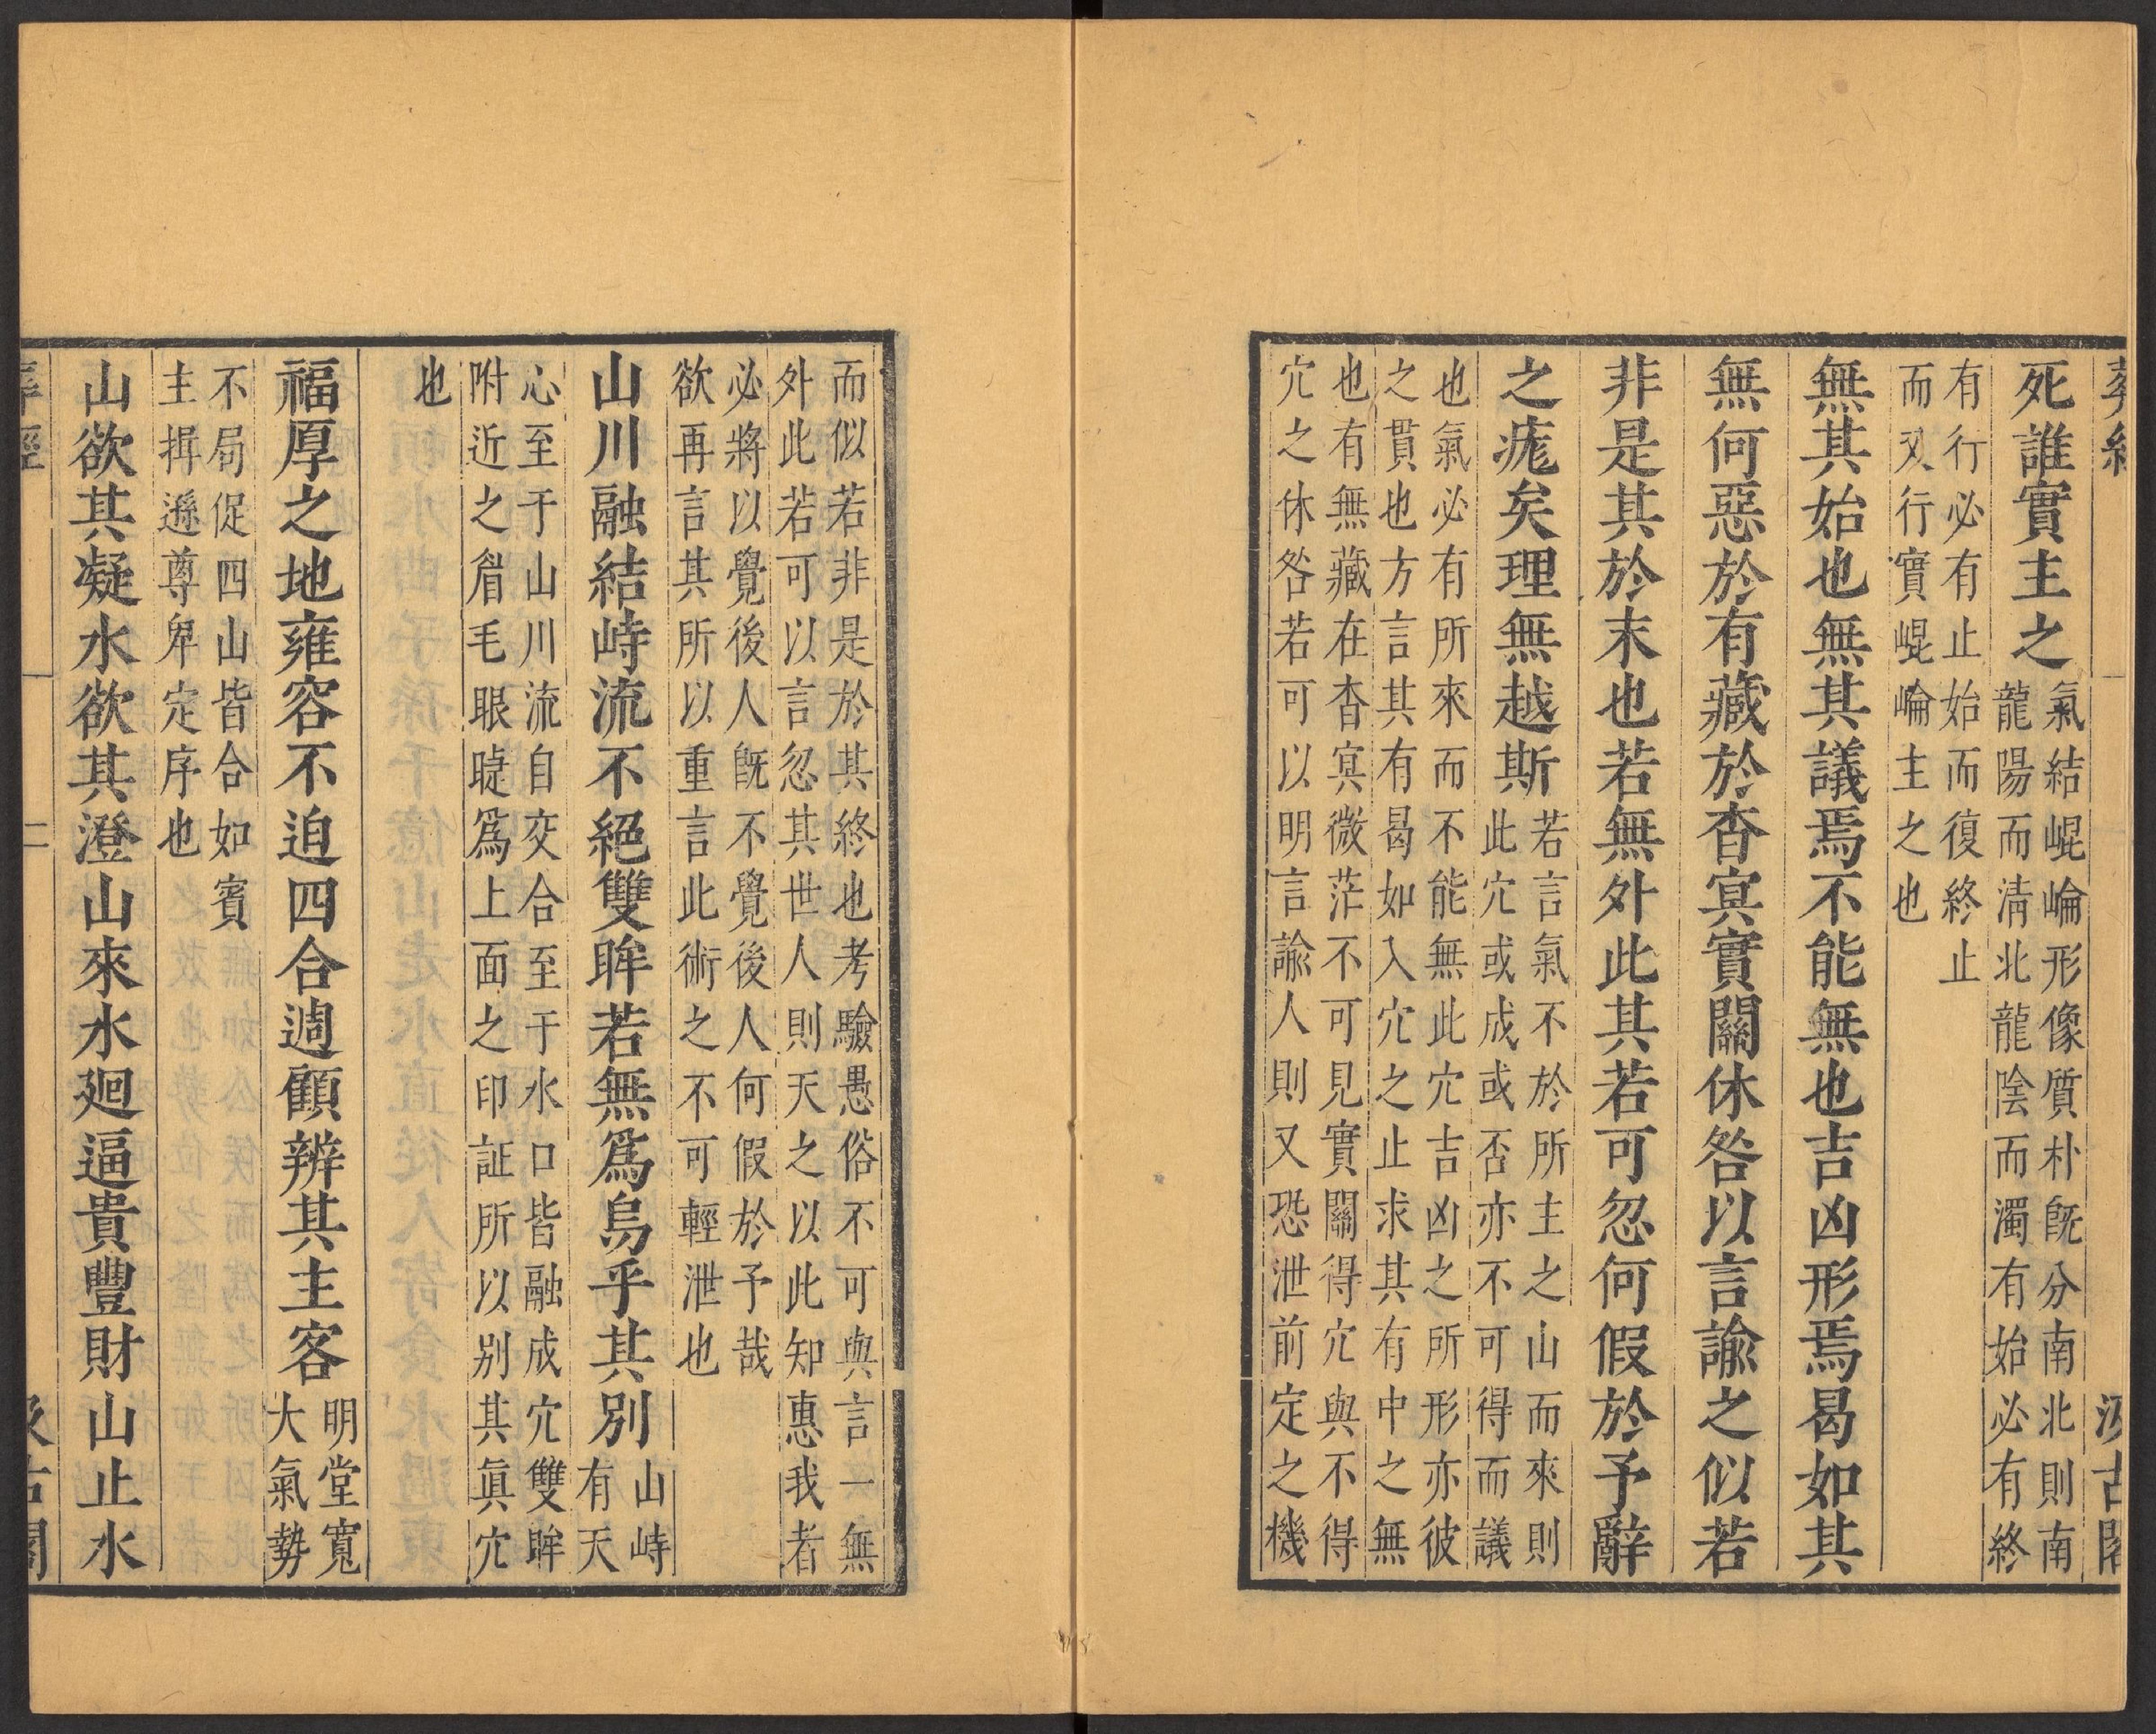 葬經
一
汲古閣
死誰實主之
氣結崐崘形像質朴旣分南北則南
龍陽而清北龍陰而濁有始必有終
有行必有止始而復終止
而又行實崐崘主之也
無其始也無其議焉不能無也吉凶形焉曷如其
無何惡於有藏於杳冥實關休咎以言諭之似若
非是其於末也若無外此其若可忽何假於予辭
之痝矣理無越斯
若言氣不於所主之山而來則
此穴或成或否亦不可得而議
也氣必有所來而不能無此穴吉凶之所形亦彼
之貫也方言其有曷如入穴之止求其有中之無
也有無藏在杳冥微茫不可見實關得穴與不得
穴之休咎若可以明言諭人則又恐泄前定之機
而似若非是於其終也考驗愚俗不可與言一無
外此若可以言忽其世人則天之以此知惠我者
必將以覺後人旣不覺後人何假於予哉
欲再言其所以重言此術之不可輕泄也
山川融結峙流不絕雙眸若無爲烏乎其別
山峙
有天
心至于山川流自交合至于水口皆融成穴雙眸
附近之眉毛眼睫爲上面之印証所以別其眞穴
也
福厚之地雍容不迫四合週顧辨其主客
明堂寬
大氣勢
不局促四山皆合如賓
主揖遜尊卑定序也
山欲其凝水欲其澄山來水廻逼貴豐財山止水
葬經
二
汲古閣